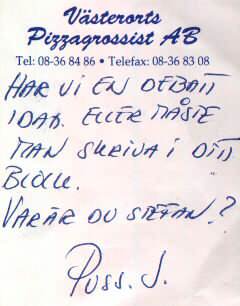 Västerorts
Pizzagrossist AB
Tel: 08-36 84 86 • Telefax: 08-36 83 08
HAR VI EN DEBATT
IDAG. ELLER MÅSTE
MAN SKRIVA I DITT
BLOCK.
VAR ÄR DU STEFAN?
PUSS. J.